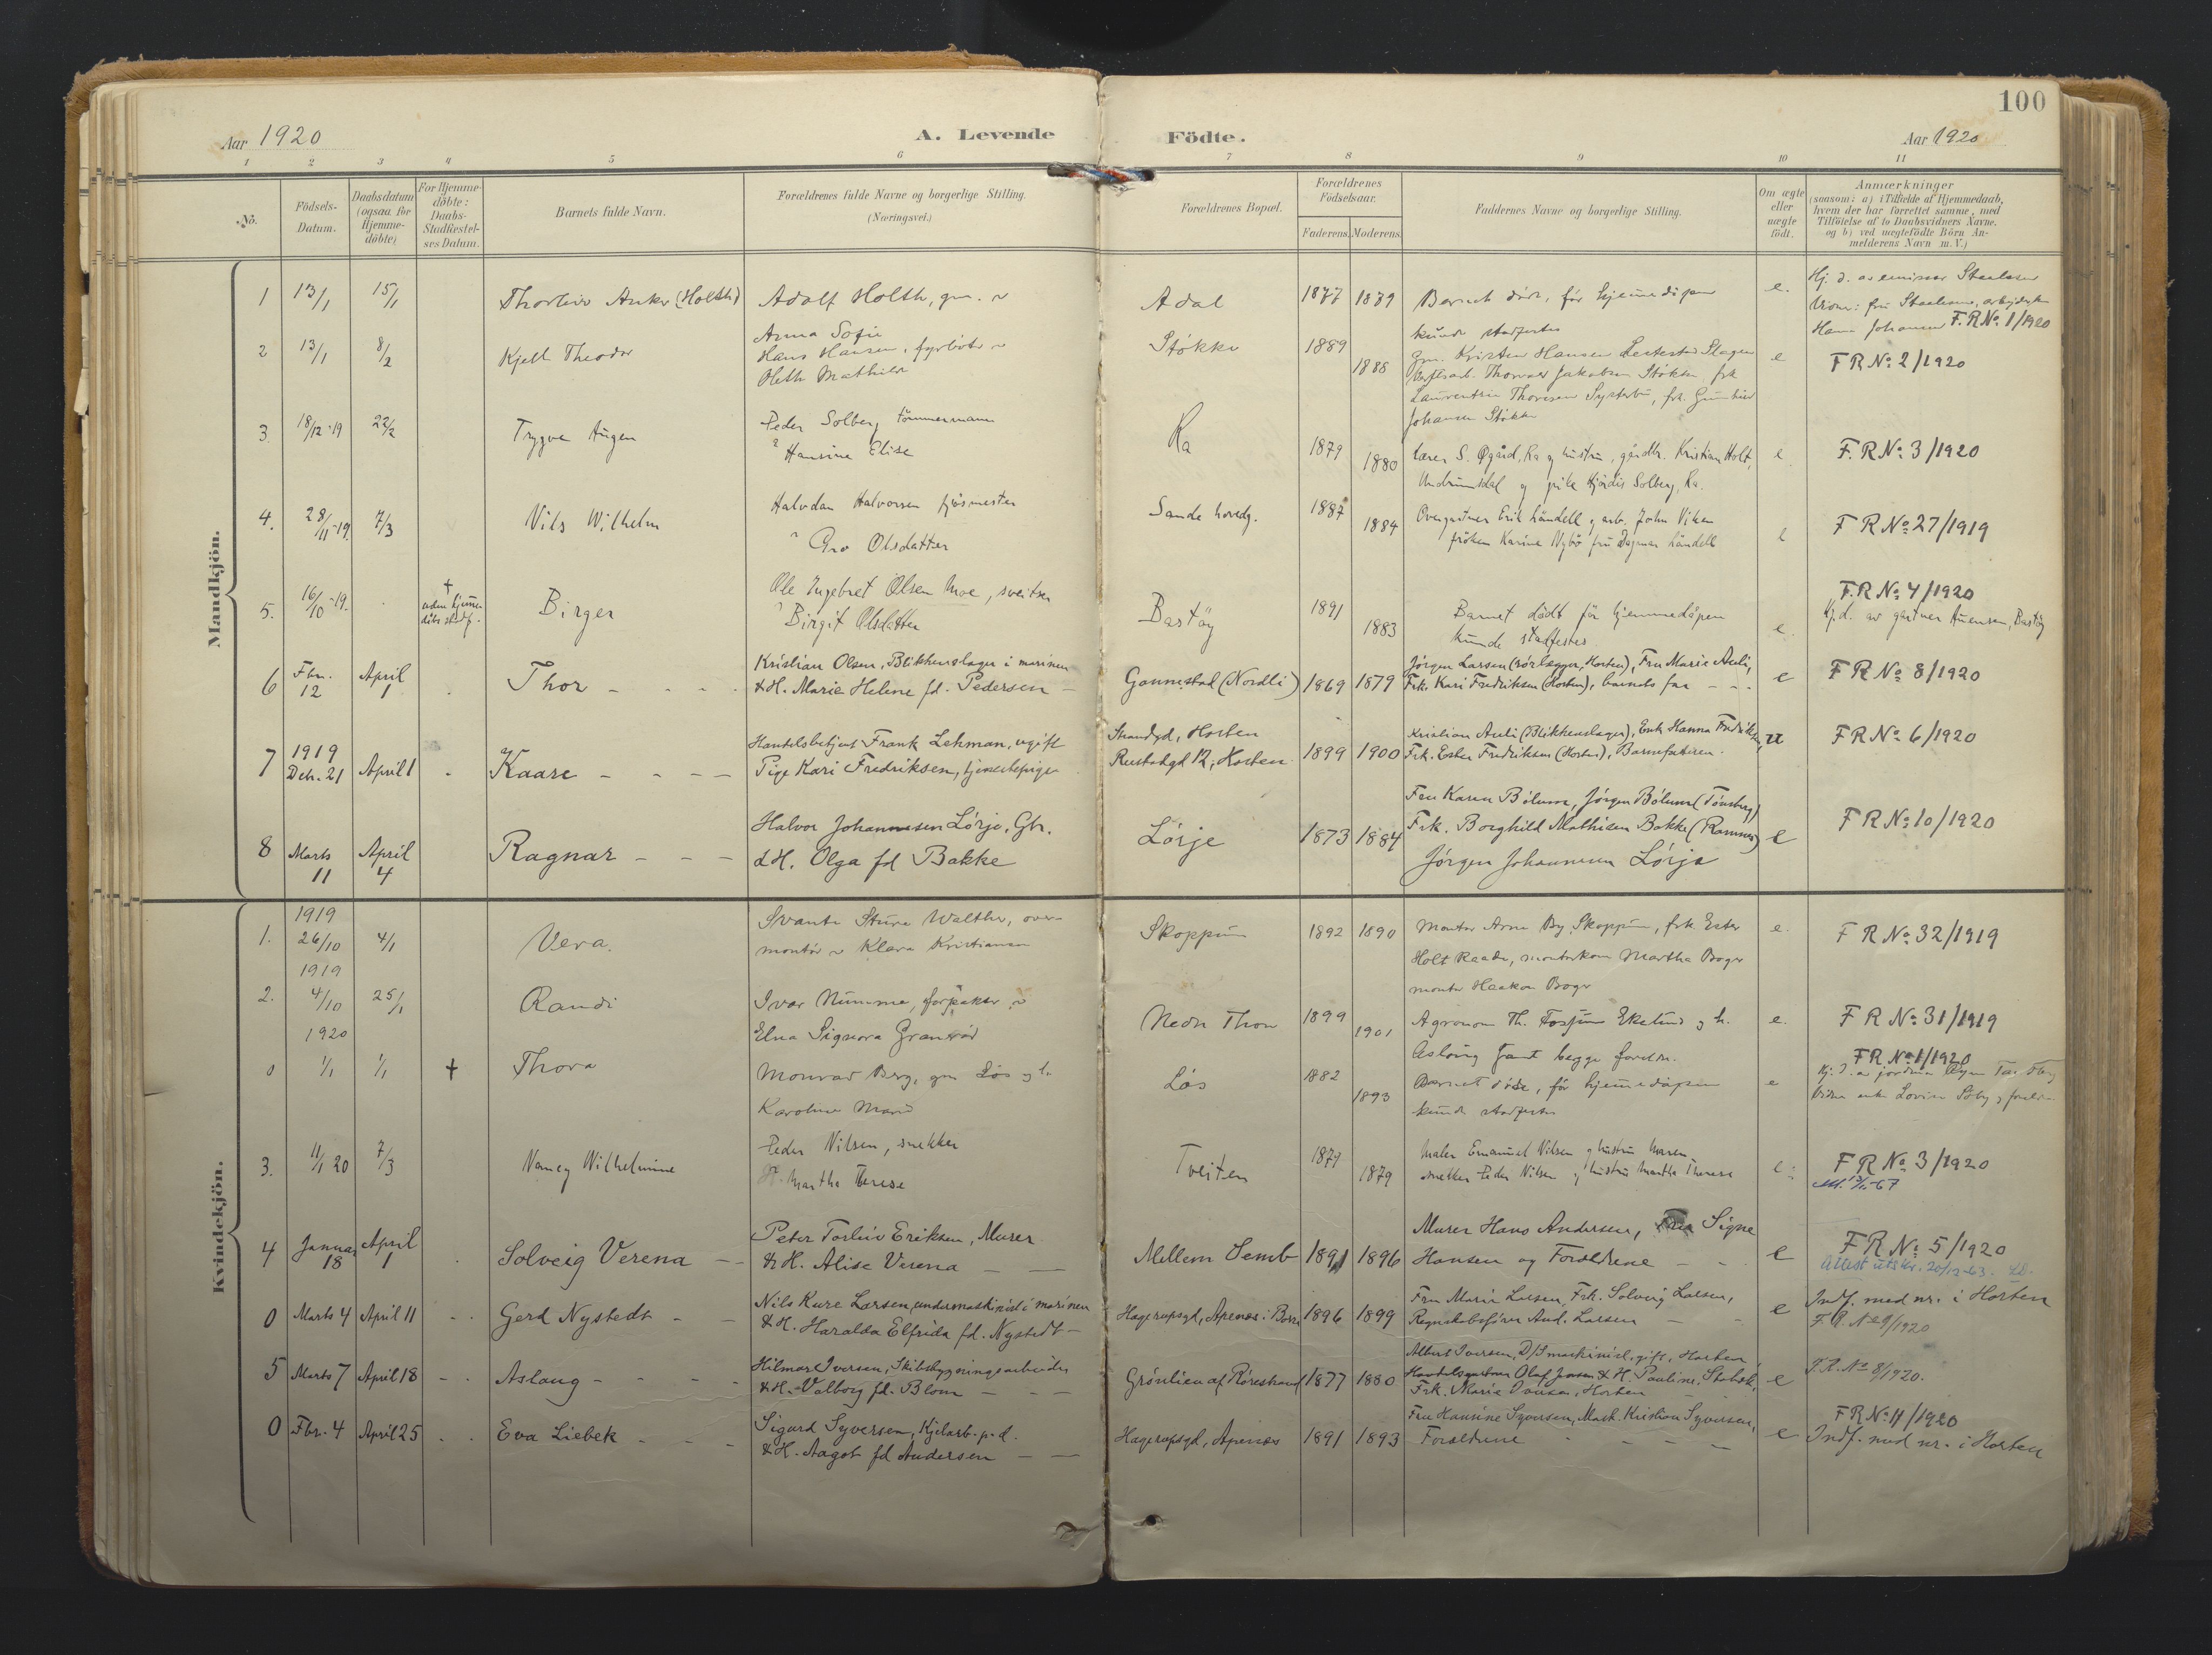 100
Aar 1920
A. Levende Födte.
Aar 1920
1 2 3 4 5 6 7 8 9 10 11
No.
Födsels-Datum.
Daabsdatum (ogsaa for Hjemme-döbte)
For Hjemme-döbte: Daabs-Stadfæstel-ses Datum.
Barnets fulde Navn.
Forældrenes fulde Navne og borgerlige Stilling. (Næringsvei.)
Forældrenes Bopæl.
Forældrenes Födselsaar.
Faderens. Moderens.
Faddernes Navne og borgerlige Stilling.
Om ægte eller uægte födt.
Anmærkninger
(saasom: a) i Tilfælde af Hjemmedaab,
hvem der har forrettet samme, med
Tilföielse af to Daabsvidners Navne.
og b) ved uægtefödte Börn An-
melderens Navn m. V.)
Mandkjön.
1 13/1 15/1 Thorleiv Anker (Holth) Adolf Holth, gm. Adal 1877 1879 e.
Anna Sofie
kunde stadfestes
Hanna Johansen F.R No. 1/1920
2 13/1 8/2 Kjell Theodor Hans Hansen, fyrböter Stokke 1889 1888 e F R No. 2/1920
Gm. Kristen Hansen Slagen
Thorvald Jakobsen Stokke frk
Laurentse Thoresen, frk. Gunhild
Johansen Stokke
3. 18/12-19 22/2 Trygve Augen Peder Solberg tömmermann
Hansine Elise Ra 1879 1880 e F. R No. 3/1920
lærer S. Øgård, Ra og hustru, gårdbr. Kristian Holt,
Undrumsdal og pike Hjördis Solberg, Ra.
4. 28/11-19. 7/3 Nils Wilhelm Halvdan Halvorsen fjösmester
Gro Olsdatter Sande hovedg. 1887 1884 e F R No. 27/1919
Overgartner Erik Händell g arb. John Viken
fröken Karine Nybö fru Dagmar Händell
5. 16/10-19. † uden hjemmedåbs stadf. Birger Ole Ingebret Olsen Moe, sveitser
Birgit Olsdatter Bastöy 1891 1883 e.
Barnet dödt för hjemmedåpen
kunde stadfestes
F. R No. 4/1920
Hj.d. av gartner Auensen, Bastöy
6 Fbr. 12 April 1 Thor Kristian Olsen, Blikkenslager i marinen
& H. Marie Helene fd. Pedersen Gannestad (Nordli) 1869 1879
Jörgen Larsen (rörlægger, Horten), Fru Marie Auli,
Frk. Kari Fredriksen (Horten), barnets far e F R No. 8/1920
7 1919 Dcb. 21 April 1 Kaare Handelsbetjent Frank Lehman, ugift
Pige Kari Fredriksen, tjenestepige
Strandgd, Horten
Rustadgd 12, Horten. 1899 1900
Kristian Auli (Blikkenslager), Enk. Hanna Fredriksen,
Frk. Ester Fredriksen (Horten), Barnefaderen. u F R No. 6/1920
8 Marts 11 April 4 Ragnar Halvor Johannesen Lörje, Gbr.
& H. Olga fd Bakke Lörje 1873 1884
Fru Karen Bölum, Jörgen Bölum (Tönsberg)
Frk. Borghild Mathisen Bakke (Ramnes)
Jörgen Johannesen Lörje e F R No. 10/1920
Kvindekjön.
1. 1919 26/10 4/1 Vera. Svante Sture Walther, over-
montör Klara Kristiansen Skoppum 1892 1890 e.
Montör Arne By, Skoppum, frk Ester
Holt Raade, montörkone Martha Boger
montör Haakon Boger F R No. 32/1919
2. 1919 4/10 25/1 Randi Ivar Numme, forpakter
Elna Signora Granöd Nedr Thon 1899 1901 e. F R No. 31/1919
Agronom Th. Ekelund g h.
Aslaug samt begge foreldr.
0 1920 1/1 1/1 † Thora Monrad Berg, gm Lös g h.
Karoline Marie Lös 1882 1893 e
Barnet döde, för hjemmedåpen
kunde stadfestes
F R No 1/1920
3. 11/1 20 7/3 Nancy Wilhelmine Peder Nilsen, snekker
H. Martha Therese Tveiten 1879 1879 e:
Maler Emanuel Nilsen g hustru Maren
snekker Peder Nilsen g hustru Martha Therese
F R No. 3/1920
4 Januar 18 April 1 Solveig Verena Peter Torleiv Eriksen, Murer
& H. Alise Verena Mellem Semb 1891 1896
Murer Hans Andersen, Fru Signe
Hansen og Forældrene e F R No. 5/1920
Attest utskr. 20/12-63.
0 Marts 4 April 11 Gerd Nystedt Nils Kure Larsen, undermaskinist i marinen
& H. Haralda Elfrida fd. Nystedt
Hagerupsgd, Apenes i Borre 1896 1899
Fru Marie Larsen, Frk. Solveig Larsen,
Regnskabsförer And. Larsen e Indf. med nr. i Horten
F. R. No 9/1920
5 Marts 7 April 18 Aslaug Hilmar Iversen, Skibsbygningsarbeider
& H. Valborg fd. Blom Grönlien af Rörestrand 1877 1880
Albert Iversen, D/S maskinist, gift, Horten
Handelsgartner Olaf Jensen & H. Pauline,
Frk. Marie Iversen, Horten e F.R. No 8/1920.
0 Fbr. 4 April 25 Eva Liebek Sigurd Syversen, Kjelarb. p.d.
& H. Aagot fd Andersen Hagerupsgd, Apenes 1891 1893
Fru Hansine Syversen, Mask. Kristian Syversen,
Forældrene e F R No. 11/1920
Indf. med nr. i Horten